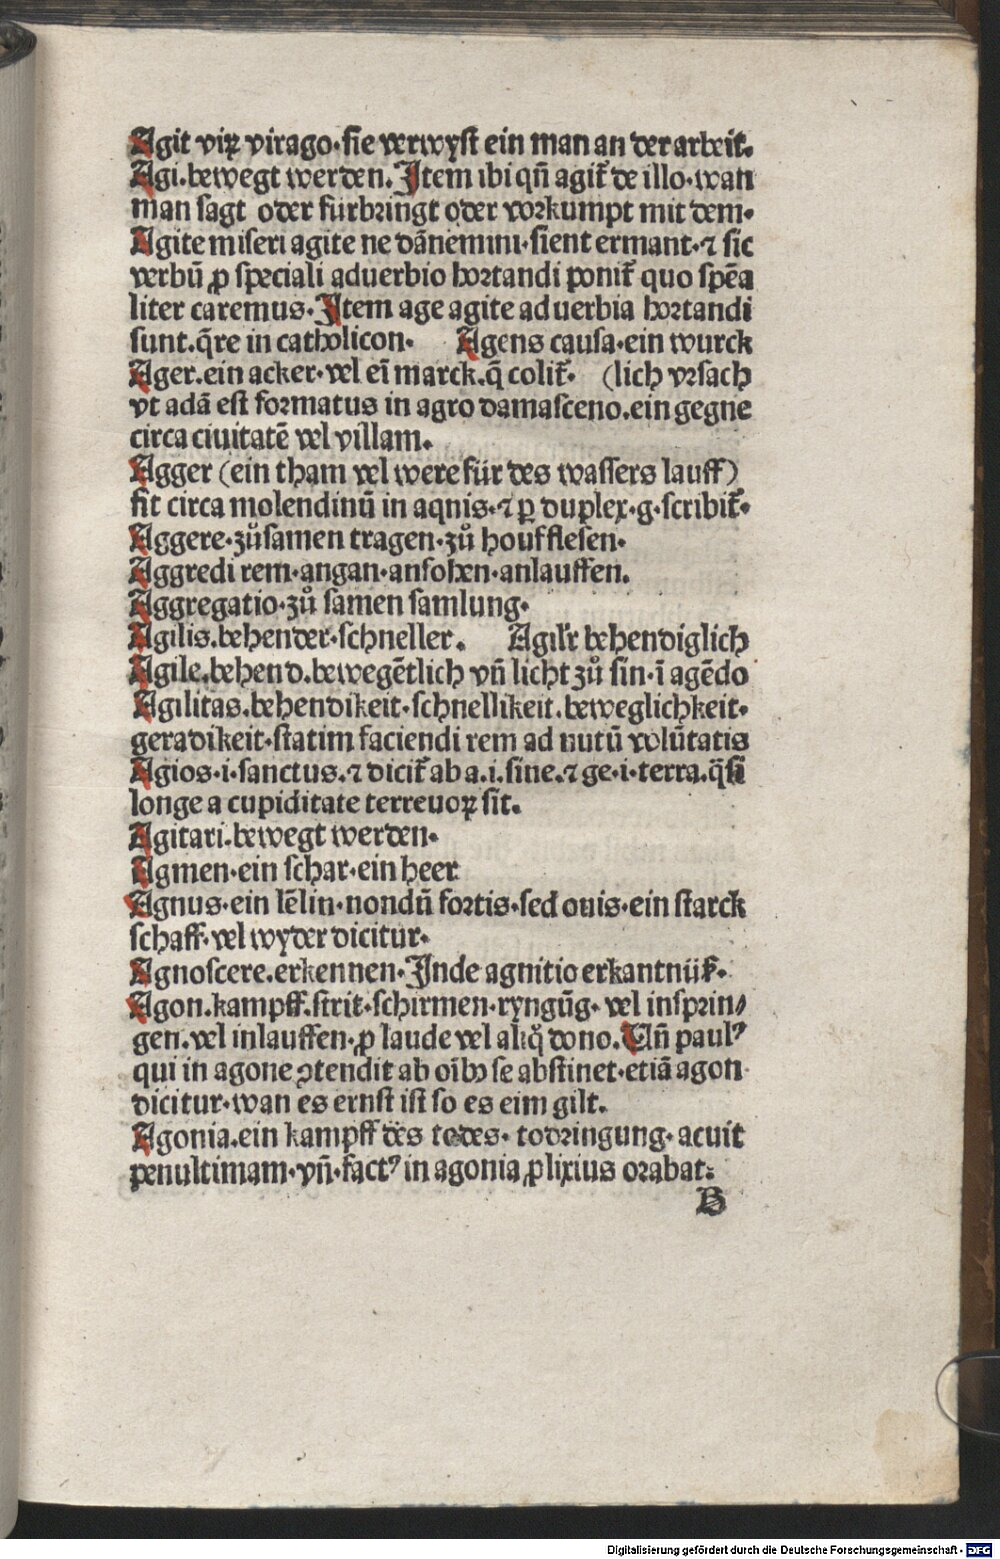 Agit viꝝ virago·sie verwyst ein man an der arbeit.
Agi.bewegt werden.Item ibi qñ agit̃ de illo·wan
man sagt oder fürbringt oder vorkumpt mit dem·
Agite miseri agite ne dãnemini·sient ermant·⁊ sic
verbũ ꝓ speciali aduerbio hortandi ponit̃ quo spẽa
liter caremus·Item age agite aduerbia hortandi
sunt.q̃re in catholicon· Agens causa·ein wurck
Ager.ein acker·vel eĩ marck.q̃ colit̃· (lich vrsach
vt adã est formatus in agro damasceno.ein gegne
circa ciuitatẽ vel villam.
Agger (ein tham vel were für des wassers lauff)
fit circa molendinũ in aqnis·⁊ ꝑ duplex·g·scribit̃·
Aggere·zůsamen tragen·zů houfflesen·
Aggredi rem·angan·ansohen·anlauffen.
Aggregatio·zů samen samlung·
Agilis.behender·schneller. Agil'r behendiglich
Agile.behend.bewegẽtlich vñ licht zů sin·ĩ agẽdo
Agilitas.behendikeit·schnellikeit.beweglichkeit·
geradikeit·statim faciendi rem ad nutũ volũtatis
Agios·i·sanctus.⁊ dicit̃ ab a.i.sine.⁊ ge·i·terra.q̃si
longe a cupiditate terreuoꝝ sit.
Agitari.bewegt werden·
Agmen·ein schar·ein heer
Agnus·ein lẽlin·nondũ fortis·sed ouis·ein starck
schaff·vel wyder dicitur·
Agnoscere.erkennen·Inde agnitio erkantniß·
Agon.kampff.strit·schirmen·ryngũg·vel insprin⸗
gen.vel inlauffen·ꝓ laude vel aliq̊ dono.Vñ paulꝰ
qui in agone ꝯtendit ab oĩbꝫ se abstinet·etiã agon
dicitur·wan es ernst ist so es eim gilt.
Agonia.ein kampff des todes·todringung·acuit
penultimam·vñ·factꝰ in agonia ꝓlixius orabat:
B
Digitalisierung gefördert durch die Deutsche Forschungsgemeinschaft - DFG